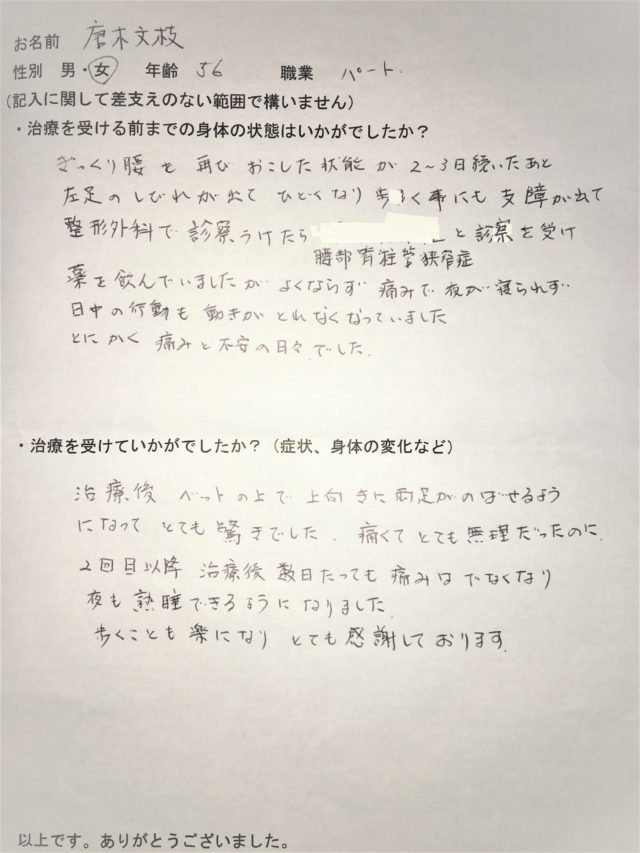 お名前 唐木文枝
性別 男・女 年齢 56 職業 パート.
(記入に関して差支えのない範囲で構いません)
・治療を受ける前までの身体の状態はいかがでしたか？
ぎっくり腰を再びおこした状態が2～3日続いたあと
左足のしびれが出てひどくなり歩るく事にも支障が出て
整形外科で診察うけたら と診察を受け
腰部脊柱管狭窄症
薬を飲んでいましたがよくならず痛みで夜が寝られず
日中の行動も動きがとれなくなっていました
とにかく痛みと不安の日々でした.
・治療を受けていかがでしたか？（症状、身体の変化など）
治療後 ベットの上で上向きに両足がのばせるよう
になってとても驚きでした. 痛くてとても無理だったのに.
2回目以降 治療後数日たっても痛みはでなくなり
夜も熟睡できるようになりました.
歩くことも楽になり とても感謝しております.
以上です。ありがとうございました。